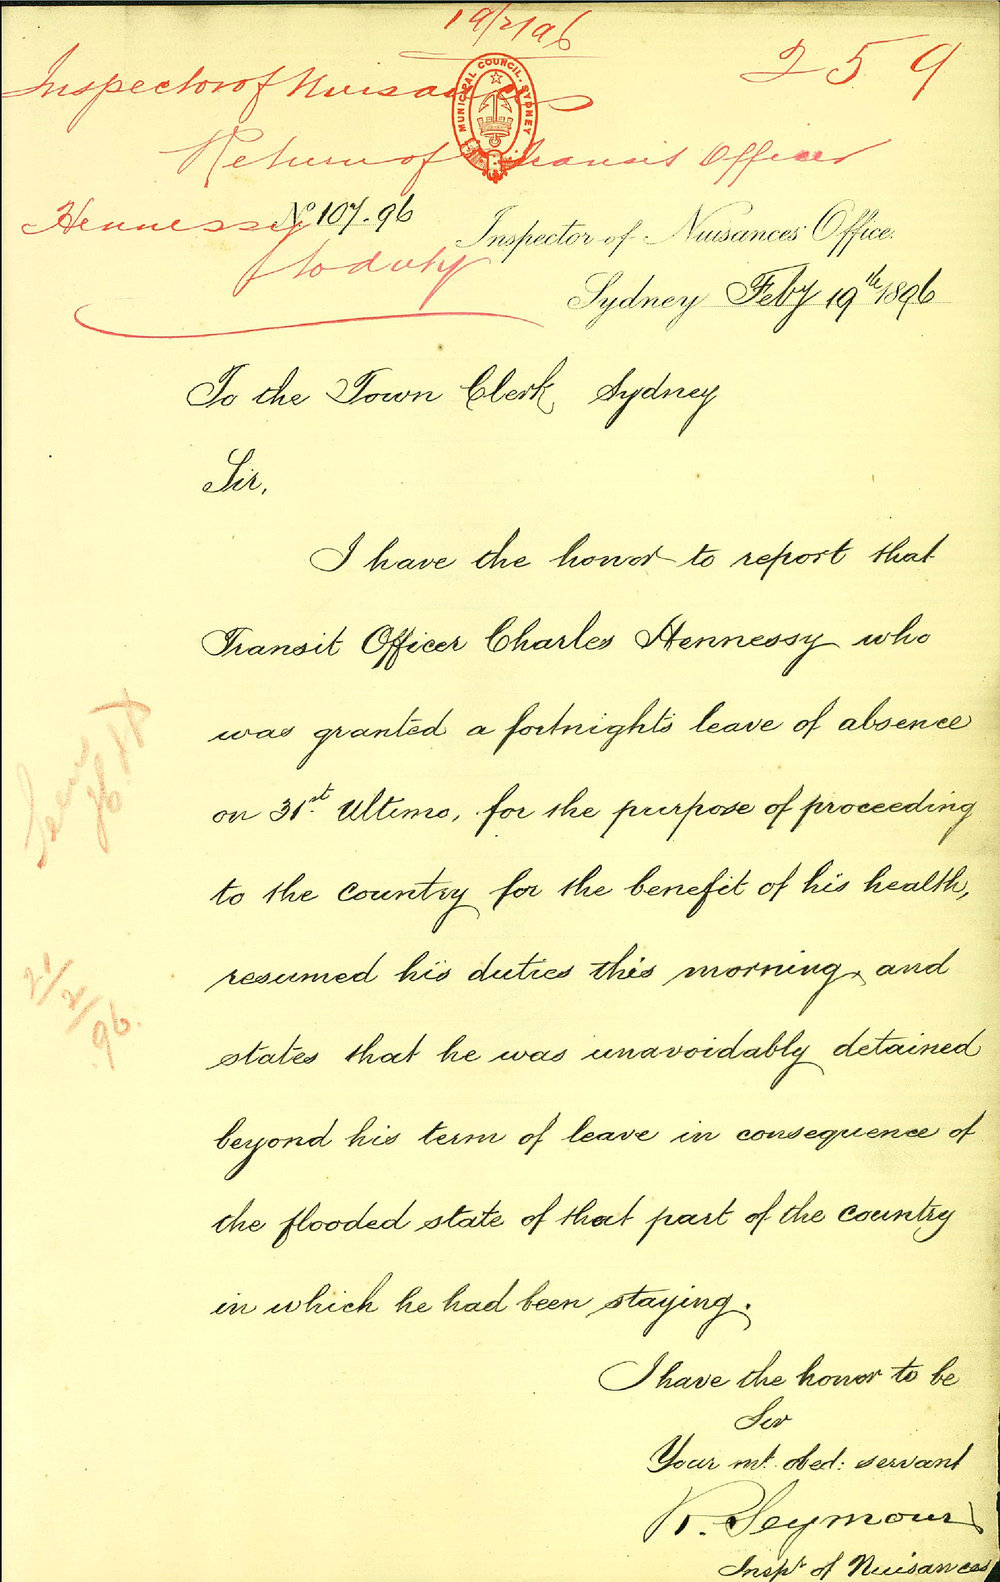 19/2/96
259
Inspector of Nuisances
MUNICIPAL COUNCIL. SYDNEY
Return of Transit Officer
Hennessy
to duty
No 107.96
Inspector of Nuisances Office.
Sydney Feby 19th 1896
To the Town Clerk, Sydney
Sir,
I have the honor to report that
Transit Officer Charles Hennessy who
was granted a fortnights leave of absence
on 31st Ultimo, for the purpose of proceeding
to the country for the benefit of his health,
resumed his duties this morning, and
states that he was unavoidably detained
beyond his term of leave in consequence of
the flooded state of that part of the country
in which he had been staying.
I have the honor to be
Sir
Your mt. obed: servant
R. Seymour
Inspr of Nuisances
Seen
21/2/96.